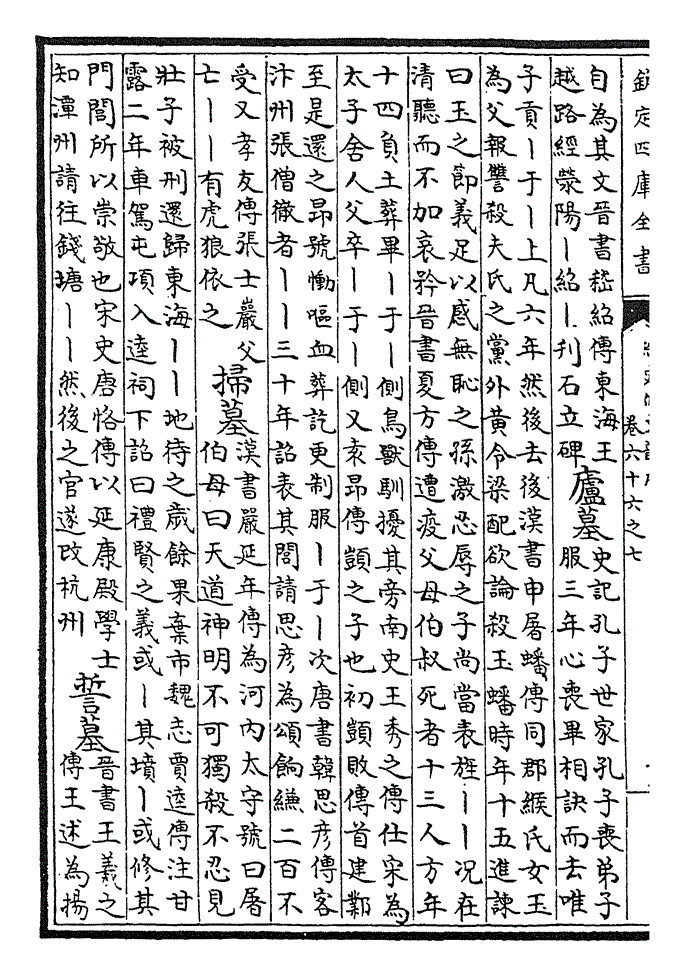 欽定四庫全書
卷六十六之七
自為其文晉書嵇紹傳東海王
越路經滎陽丨紹丨刋石立碑
廬墓
史記孔子世家孔子喪弟子
服三年心喪畢相訣而去唯
子貢丨于丨上凡六年然後去後漢書申屠蟠傳同郡緱氏女玉
為父報讐殺夫氏之黨外黄令梁配欲論殺玉蟠時年十五進諫
曰玉之節義足以感無恥之孫激忍辱之子尚當表旌丨丨况在
清聽而不加哀矜晉書夏方傳遭疫父母伯叔死者十三人方年
十四負土葬畢丨于丨側鳥獸馴擾其旁南史王秀之傳仕宋為
太子舍人父卒丨于丨側又袁昂傳顗之子也初顗敗傳首建鄴
至是還之昂號慟嘔血葬訖更制服丨于丨次唐書韓思彦傳客
汴州張僧徹者丨丨三十年詔表其閭請思彦為頌餉縑二百不
受又孝友傳張士巖父
亡丨丨有虎狼依之
掃墓
漢書嚴延年傳為河内太守號曰屠
伯母曰天道神明不可獨殺不忍見
壯子被刑還歸東海丨丨地待之歲餘果棄市魏志賈逵傳注甘
露二年車駕屯項入逵祠下詔曰禮賢之義或丨其墳丨或修其
門閭所以崇敬也宋史唐恪傳以延康殿學士
知潭州請往錢塘丨丨然後之官遂改杭州
誓墓
晉書王羲之
傳王述為揚